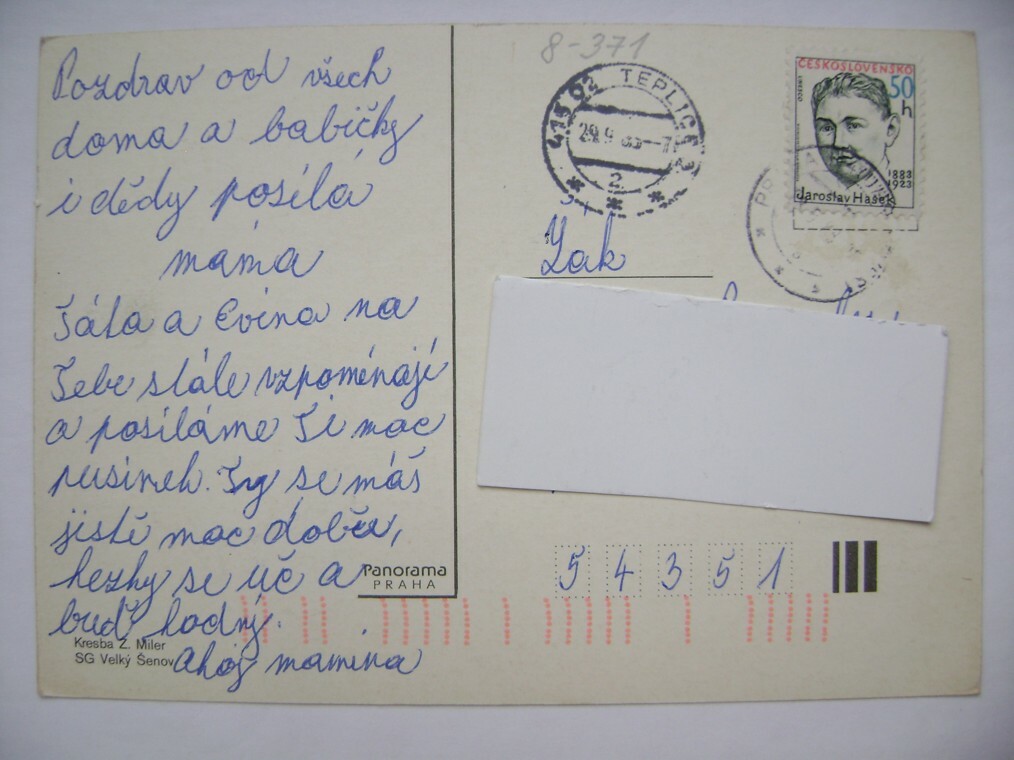 Pozdrav od všech
doma a babičky
i dědy posílá
máma
Táta a Evina na
Tebe stále vzpomínají
a posíláme Ti moc
pusinek. Ty se máš
jistě moc dobře,
hezky se uč a
buď hodný.
Ahoj mamina
Kresba Z. Miler
SG Velký Šenov
Panorama
PRAHA
8-371
415 02 TEPLICE 2
29.9
ČESKOSLOVENSKO
50
h
1883
1923
Jaroslav Hašek
Žák
5 4 3 5 1